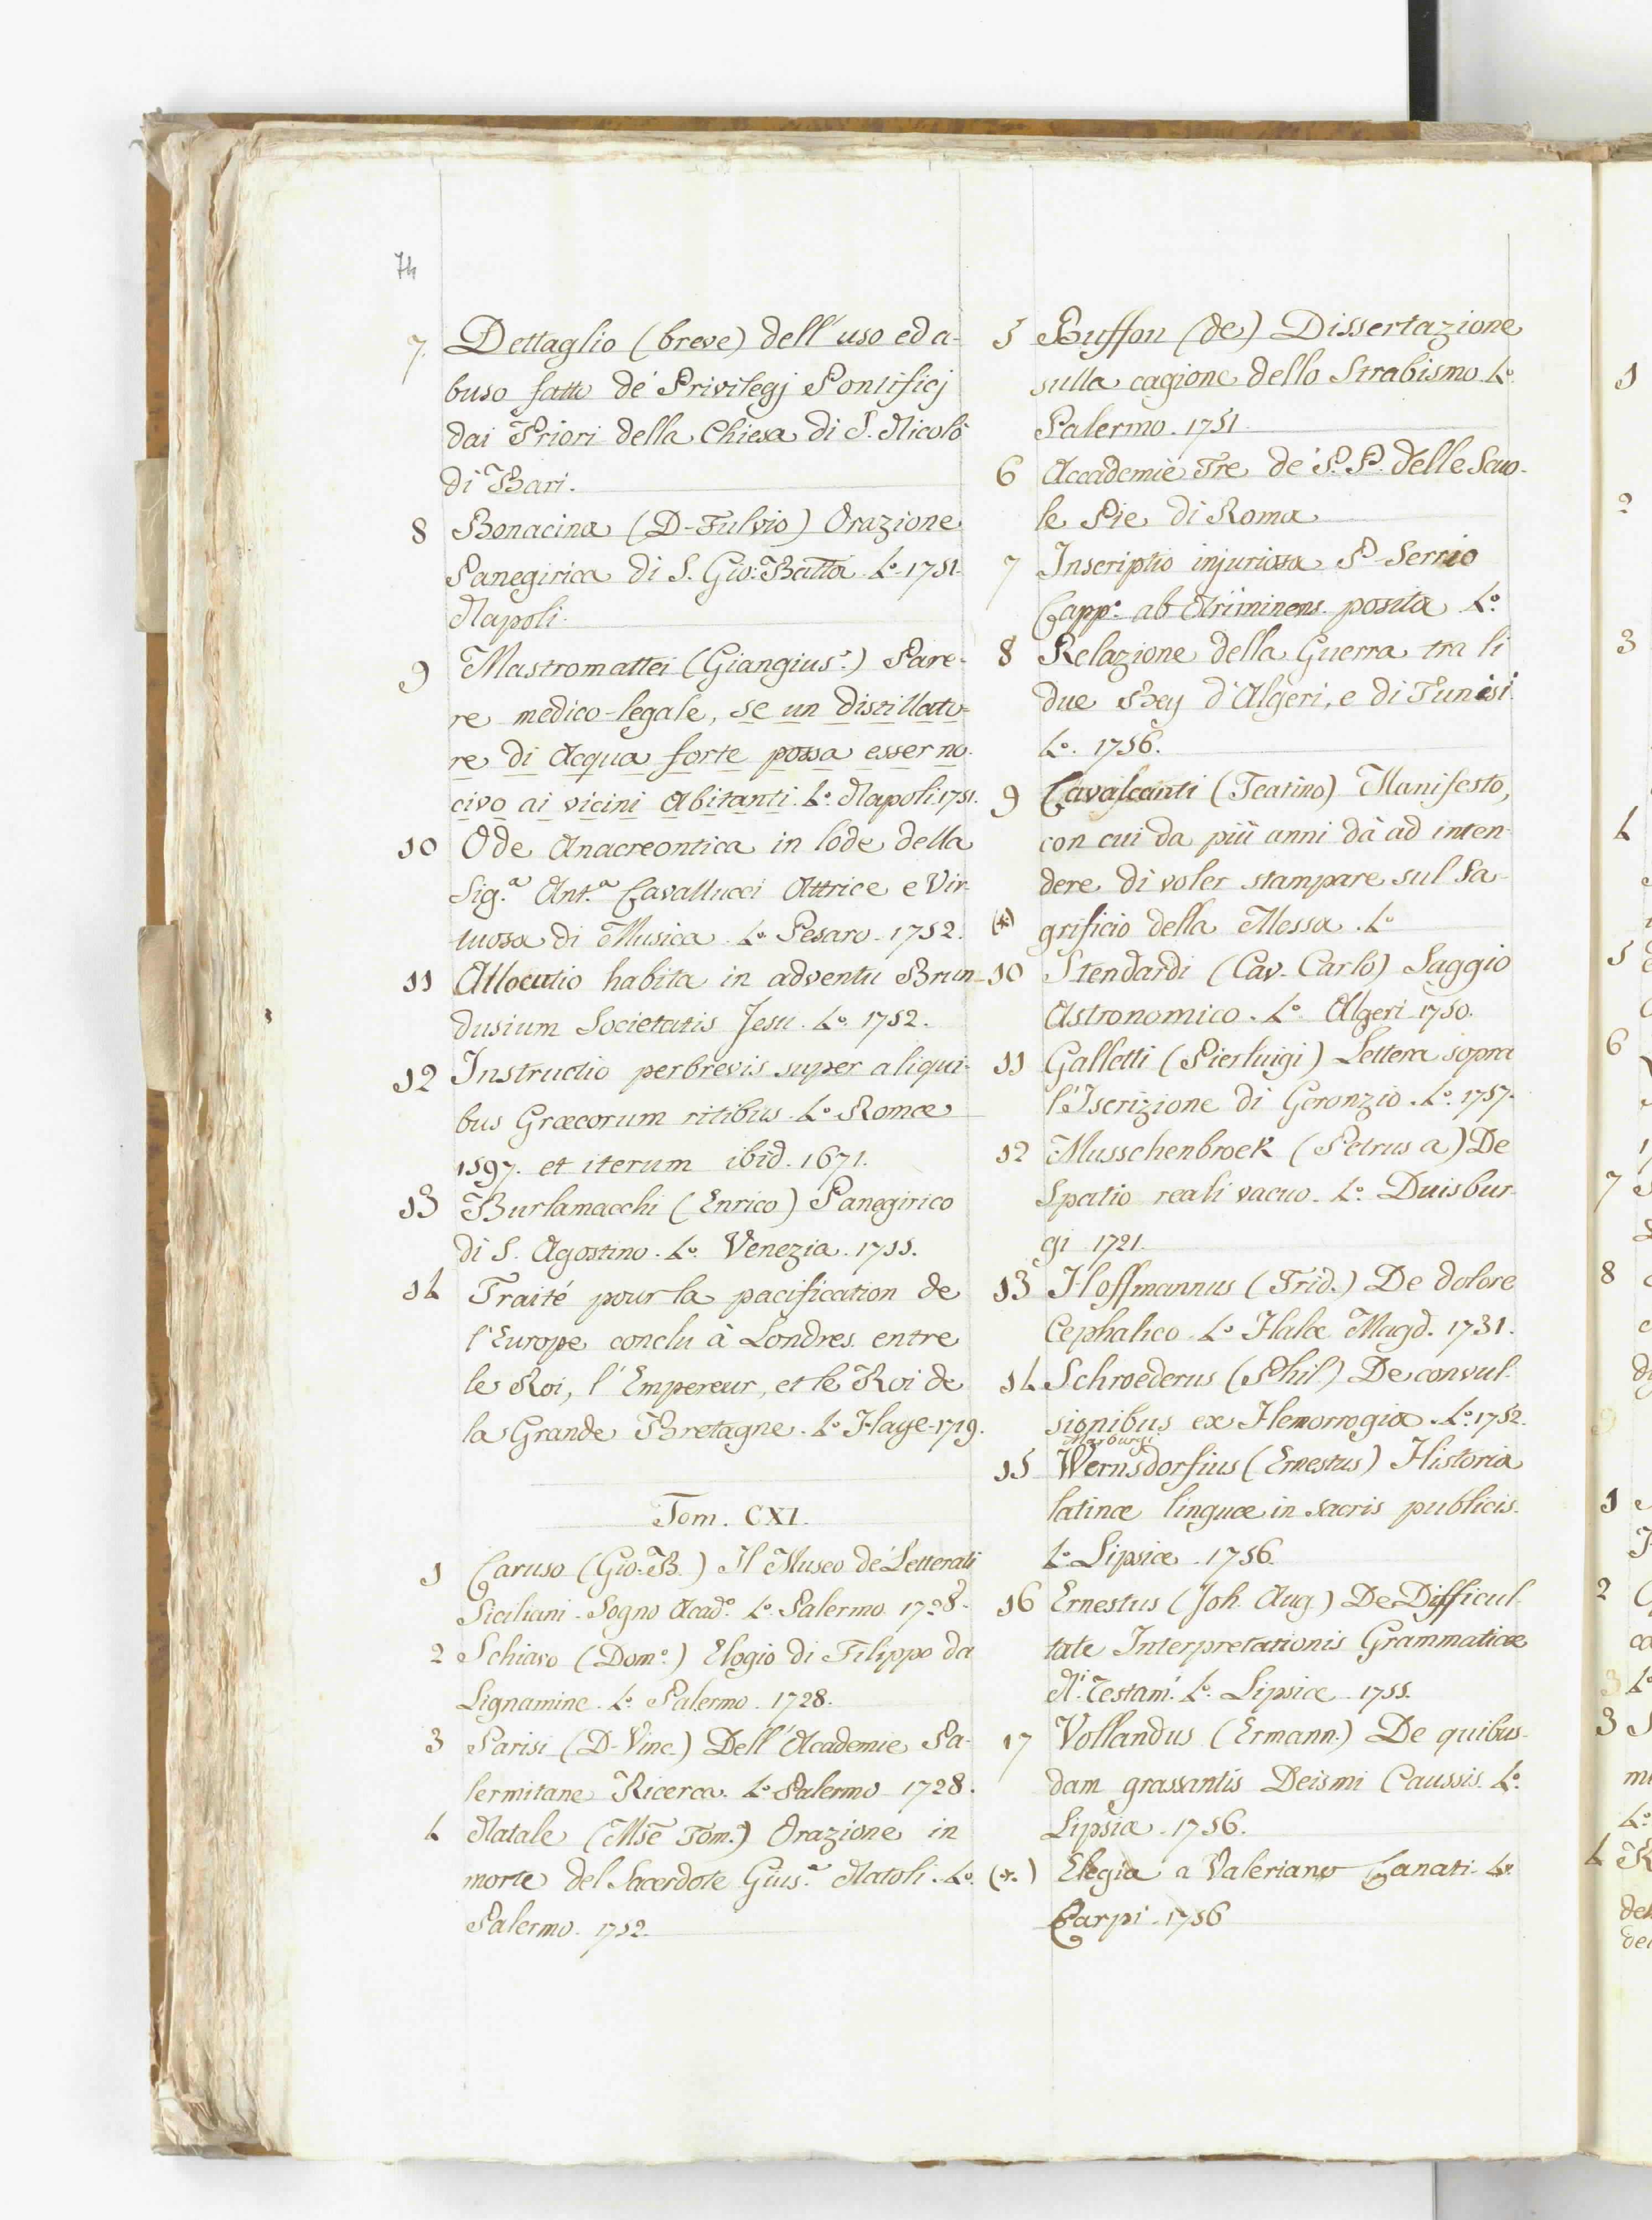 74
7. Dettaglio (breve) dell'uso ed a-
buso fatto de' Privilegj Pontificj
dai Priori della Chiesa di S. Nicolò
di Bari.
8 Bonacina (D. Fulvio) Orazione
Panegirica di S. Gio: Batta. 4.º 1751.
Napoli.
9 Mastromattei (Giangius.e) Pare-
re medico-legale, se un distillato-
re di Acqua forte possa esser no-
civo ai vicini Abitanti. 4.º Napoli. 1751.
10 Ode Anacreontica in lode della
Sig.a Ant.a Cavallucci Attrice e Vir-
tuosa di Musica. 4.º Pesaro. 1752.
11 Allocutio habita in adventu Brun-
dusium Societatis Jesu. 4.º 1752.
12 Instructio perbrevis super aliqui-
bus Græcorum ritibus. 4.º Romæ
1597. et iterum ibid. 1671.
13 Burlamacchi (Enrico) Panegirico
di S. Agostino. 4.º Venezia. 1755.
14 Traité pour la pacification de
l'Europe conclu à Londres entre
le Roi, l'Empereur, et le Roi de
la Grande Bretagne. 4.º Haye. 1719.
Tom. CXI.
1 Caruso (Gio. B.) Il Museo de' Letterati
Siciliani. Sogno Acad.o 4.º Palermo. 1728.
2 Schiavo (Dom.o) Elogio di Filippo da
Lignamine. 4.º Palermo. 1728.
3 Parisi (D. Vinc.) Dell'Academie Pa-
lermitane Ricerca. 4.º Palermo 1728.
4 Natale (Mse Tom.) Orazione in
morte del Sacerdote Gius.e Natoli. 4.º
Palermo. 1752.
5 Buffon (de) Dissertazione
sulla cagione dello Strabismo 4.º
Palermo. 1751.
6 Accademie Tre de' P.P. delle Scuo-
le Pie di Roma
7 Inscriptio injuriosa P. Serrio
Capp.o ab Ariminens. posita 4.º
8 Relazione della Guerra tra li
due Bey d'Algeri, e di Tunisi
4.º 1756.
9 Cavalcanti (Teatino) Manifesto,
con cui da più anni dà ad inten-
dere di voler stampare sul Sa-
(*) grificio della Messa. 4.º
10 Stendardi (Cav. Carlo) Saggio
Astronomico. 4.º Algeri 1750.
11 Galletti (Pierluigi) Lettera sopra
l'Iscrizione di Geronzio. 4.º 1757.
12 Musschenbroek (Petrus a) De
Spatio reali vacuo. 4.º Duisbur-
gi 1721.
13 Hoffmannus (Frid.) De dolore
Cephalico 4.º Halæ Magd. 1731.
14 Schroederus (Phil.) De convul-
sionibus ex Hemorrogia. 4.º 1752.
Marburgi
15 Wernsdorfius (Ernestus) Historia
latinæ linguæ in sacris publicis.
4.º Lipsiæ. 1756.
16 Ernestus (Joh. Aug.) De Difficul-
tate Interpretationis Grammaticæ
N.i Testam.i 4.º Lipsiæ 1755.
17 Vollandus (Ermann.) De quibus-
dam grassantis Deismi Caussis. 4.º
Lipsiæ. 1756.
(*) Elegia a Valeriano Canati. 4.º
Carpi. 1756